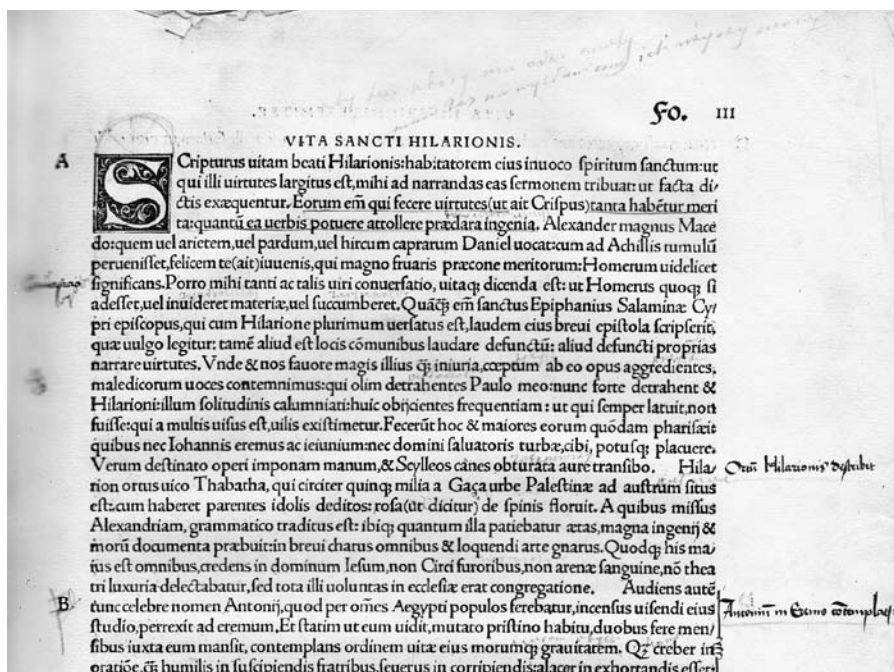 Fo. III
VITA SANCTI HILARIONIS.
A
SCripturus uitam beati Hilarionis:habitatorem eius inuoco spiritum sanctum:ut
qui illi uirtutes largitus est,mihi ad narrandas eas sermonem tribuat:ut facta di/
ctis exæquentur. Eorum em̄ qui fecere uirtutes(ut ait Crispus)tanta habẽtur meri
ta:quantũ ea uerbis potuere attollere præclara ingenia. Alexander magnus Mace
do:quem uel arietem,uel pardum,uel hircum caprarum Daniel uocat:cum ad Achillis tumulũ
peruenisset,felicem te(ait)iuuenis,qui magno fruaris præcone meritorum:Homerum uidelicet
significans.Porro mihi tanti ac talis uiri conuersatio, uitaq; dicenda est: ut Homerus quoq; si
adesset,uel inuideret materiæ,uel succumberet.Quãq̃ em̄ sanctus Epiphanius Salaminæ Cy/
pri episcopus,qui cum Hilarione plurimum uersatus est,laudem eius breui epistola scripserit,
quæ uulgo legitur: tamẽ aliud est locis cõmunibus laudare defunctũ: aliud defuncti proprias
narrare uirtutes. Vnde & nos fauore magis illius q̃; iniuria,cœptum ab eo opus aggredientes,
maledicorum uoces contemnimus:qui olim detrahentes Paulo meo:nunc forte detrahent &
Hilarioni:illum solitudinis calumniati:huic obijcientes frequentiam : ut qui semper latuit,non
fuisse:qui a multis uisus est,uilis existimetur. Fecerũt hoc & maiores eorum quõdam pharisæi:
quibus nec Iohannis eremus ac ieiunium:nec domini saluatoris turbæ,cibi, potusq; placuere.
Verum destinato operi imponam manum,& Scylleos canes obturata aure transibo. Hila/
Ortũ Hilarionis describit
rion ortus uico Thabatha, qui circiter quinq; milia a Gaça urbe Palestinæ ad austrum situs
est:cum haberet parentes idolis deditos: rosa(ut dicitur) de spinis floruit. A quibus missus
Alexandriam, grammatico traditus est: ibiq; quantum illa patiebatur ætas,magna ingenij &
morũ documenta præbuit:in breui charus omnibus & loquendi arte gnarus. Quodq; his ma/
ius est omnibus,credens in dominum Iesum,non Circi furoribus,non arenæ sanguine,nõ thea
tri luxuria delectabatur,sed tota illi uoluntas in ecclesiæ erat congregatione. Audiens autẽ
B
tunc celebre nomen Antonij,quod per om̃es Aegypti populos ferebatur,incensus uisendi eius
Antonium in Eremo
studio,perrexit ad eremum.Et statim ut eum uidit,mutato pristino habitu,duobus fere men/
sibus iuxta eum mansit, contemplans ordinem uitæ eius morumq; grauitatem. Q̃; creber in
oratiõe,q̃; humilis in suscipiendis fratribus,seuerus in corripiendis:alacer in exhortandis esset: